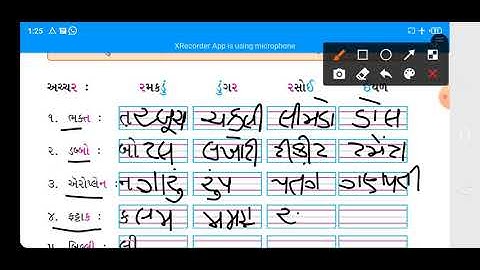 1:25
XRecorder App is using microphone
અચ્ચર : રમકડું ડુંગર રસોઈ ઈયળ
૧. ભક્ત : તરબૂચ ચકલી લીમડો ડોલ
૨. ડબ્બો : બોટલ લખોટી ટીકીટ ટમેટા
૩. ઍરોપ્લેન : નગારું રુપ પતંગ ગણપતી
૪. ફટાક : કલમ મમરા ર
લી